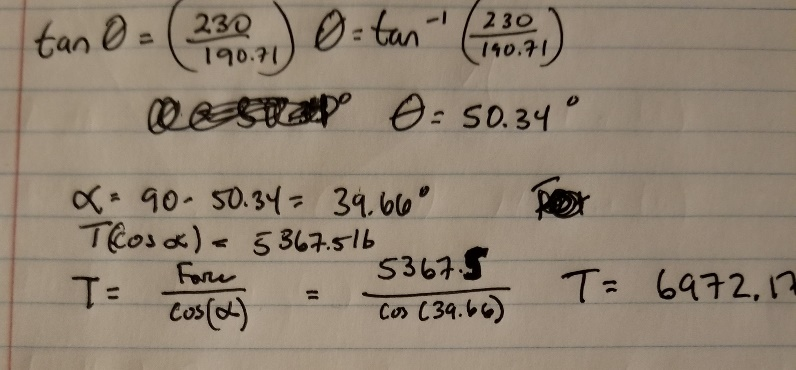 tan θ = (230/190.71) θ = tan⁻¹ (230/190.71)
θ = 50.34°
α = 90 - 50.34 = 39.66°
T(cos α) = 5367.5 lb
T = Force/cos(α) = 5367.5/cos (39.66) T = 6972.17